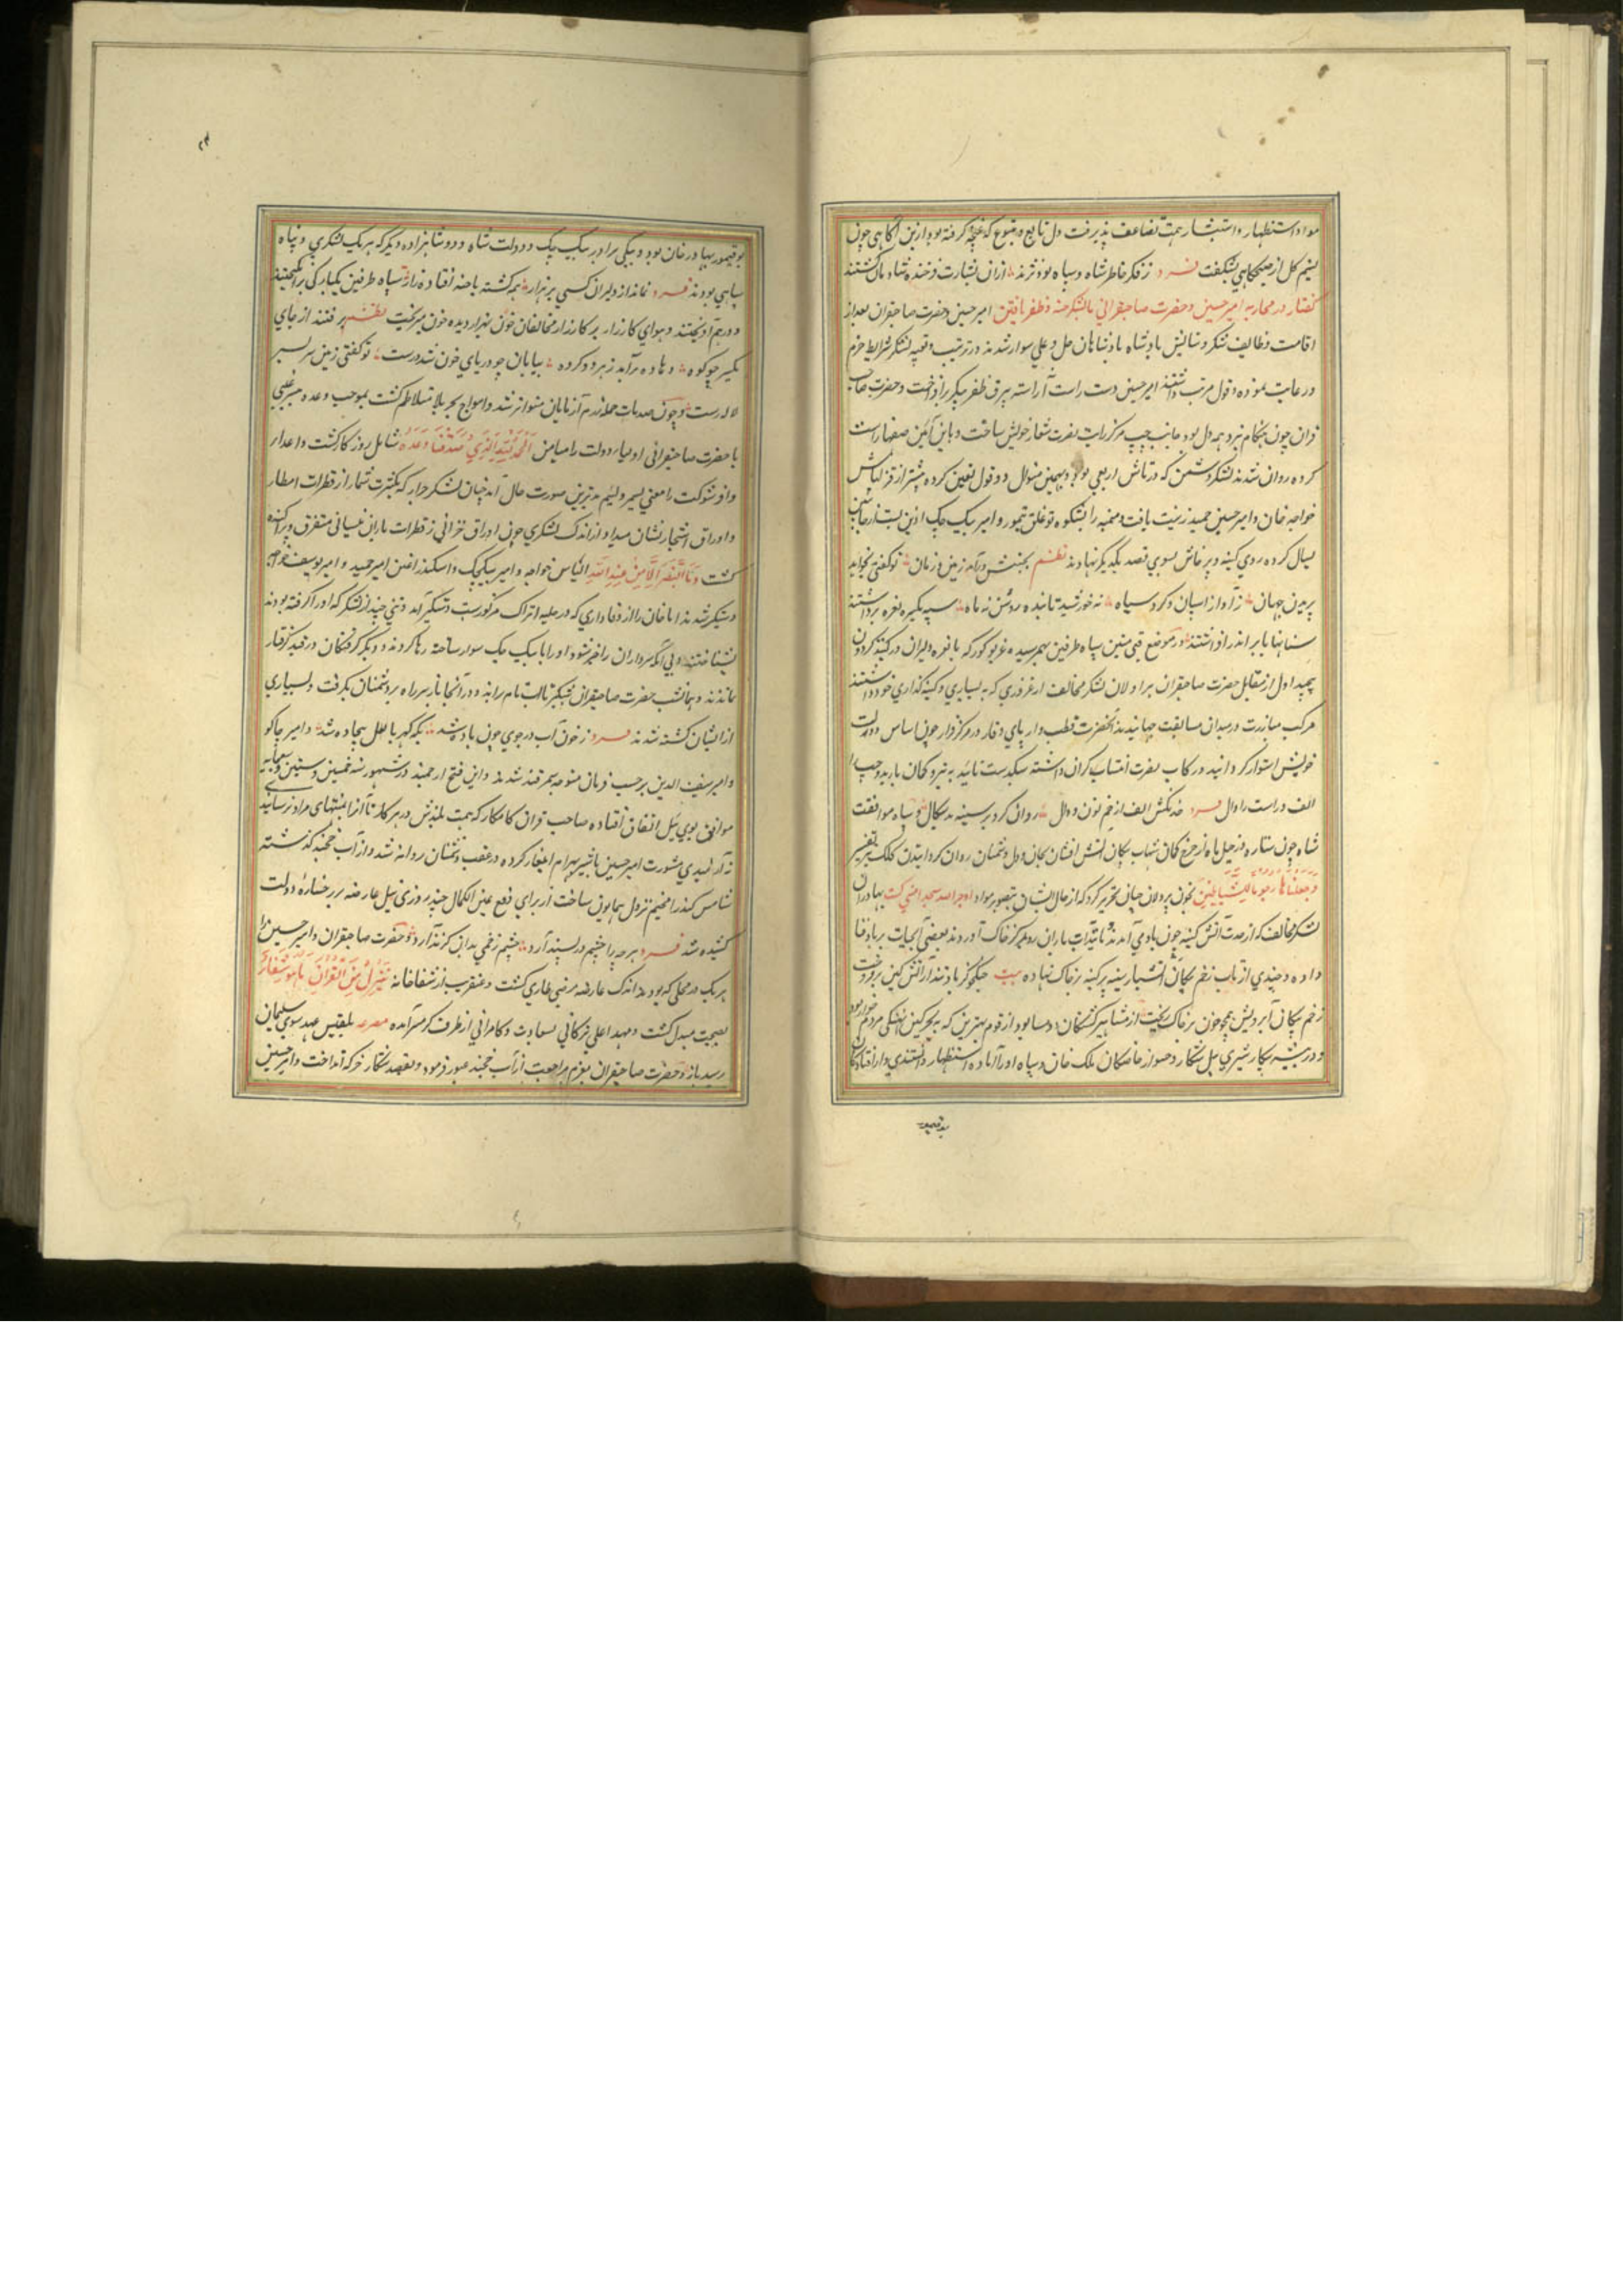 مواد استظهار و استبشار همت تضاعف پذیرفت دل تابع و متبوع که غنچه کرفته بود ازین آکاهی چون
نسیم کل از صبحکاهی بشکفت فرد ز فکر خاطر شاه و سپاه بودند از ان بشارت فرخنده شادمان کشتند
کفتار در محاربه امیر حسین و حضرت صاحبقرانی با لشکر جته و ظفر یافتن امیر حسین و حضرت صاحبقران بعد از
اقامت وظایف شکر و ستایش پادشاه پادشاهان جل و علی سوار شدند و در ترتیب و تعبیه لشکر شرایط حزم
و رعایت نموده دو قول مرتب داشتند امیر حسین دست راست آراسته بیرق ظفر پیکر برافراخت و حضرت صاحب
قران چون هنکام نبرد همه دل بود جانب چپ مرکز رایت نصرت شعار خویش ساخت و باین آئین صفها راست
کرده روان شدند لشکر دشمن که در تاش اریغی بود و بهمین منوال دو قول تعیین کرده میسر از فر الیاس
خواجه خان و امیر حسین حمید زینت یافت و میمنه را بشکوه توغلق تیمور و امیر بیک چک
یسال کرده روی کینه و پرخاش بسوی قصد یکدیکر نهادند نظم بجنبش درآمد زمین و زمان تو کفتی بخواهد
پریدن جهان ز آواز اسپان و کرد سپاه نه خورشید تابنده روشن نه ماه سپه یکسره نعره برداشتند
سنانها بابر اندر افراشتند در موضع قبی متین سپاه طرفین بهم رسیده غریو کورکه با نعره دلیران در کنبد کردون
پیچید اول از مقابل حضرت صاحبقران براولان لشکر مخالف از غروری که به بسیاری و کینه کذاری خود داشتند
مرکب مبارزت در میدان مسابقت جهانیدند آنحضرت قطب وار پای وقار در مرکز قرار چون اساس دولت
خویش استوار کردانید و رکاب نصرت انتساب کران داشته سبکدست تائید به نیروی کمان یازید و چپ را
الف و راست را دال فرد خدنکش الف از خم نون و دال روان کرد بر سینه بدسکال و سپاه موافقت
شاه چون ستاره در خیل ماه از چرخ کمان شهاب پیکان آتش افشان بجان و دل دشمنان روان کردانیدن کلک تفسیر
وجعلناها رجوما للشیاطین بخون پردلان چنان تحریر کرد که از حال ایشان تصویر مواد بهادران
لشکر مخالف که از حدت آتش کینه چون باد می آمدند تا تیراب باران رو بمرکز خاک آوردند بعضی آب حیات بر باد فنا
داده و چندی از تاب زخم پیکان آتشبار سینه پر کینه بر خاک نهاده بیت جنکجو کز باد تند آتش کین برفروخت
زخم پیکان آبرویش همچو خون بر خاک ریخت از مشاهیر کشتکان
و در بیشه پیکار شیری پیل شکار و حصول از خاصکان ملک خان و سپاه او را ماده استظهار
بوقیمور
بوقیمور بهادر خان بود و بیکی برادر بیک چک و دولت شاه و دو شاهزاده دیکر که هر یک لشکری و پناه
سپاهی بودند فرد نماند از دلیران کسی بر هزار همه کشته یا خسته افتاده زار سپاه طرفین یکبارکی برانکیخته
و درهم آویختند و هوای کارزار بر کارزار مخالفان خون بهزار دیده خون میریخت نظم برفتند از جای
یکسر چو کوه دهاده برآمد ز هر دو کروه بیابان چو دریای خون شد درست تو کفتی زمین سر بسر
لاله رست و چون صدمات حمله رزم آزمایان متواتر شد و امواج بحر بلا متلاطم کشت بموجب وعده غیبی
با حضرت صاحبقرانی اولیاء دولت را میامن الحمد لله الذی صدقنا وعده شامل روزکار کشت و اعدای
وافر شوکت را معنی بدترین صورت حال آمد چنان لشکر جرار که بکثرت شمار از قطرات امطار
و اوراق اشجار نشان میداد از اندک لشکری چون اوراق خزانی ز قطرات باران نیسانی متفرق و پراکنده
کشت وما النصر الا من عند الله الیاس خواجه و امیر بیکچک و اسکندر اغلن و امیر حمید و امیر یوسف خواجه
دستکیر شدند اما خان را از وفاداری که در جبلت اتراک مرکوز است دستکیر آمد و تنی چند از لشکر که او را کرفته بودند
بشناختند و بی آنکه سرداران را خبر شود او را با بیک چک سوار ساخته رها کردند و دیکر کرفتکان در قید کرفتار
ماندند و همانشب حضرت صاحبقران شبکیر تا آب یام براند و در آنجا باز سر راه بر دشمنان بکرفت و بسیاری
از ایشان کشته شدند فرد ز خون آب در جوی چون باده شد یکه کهربا لعل بیجاده شد و امیر جاکو
و امیر سیف الدین بر حسب فرمان متوجه سمرقند شدند و این فتح ارجمند در شهور سنه خمس و ستین و سبعمایه
موافق یوی ئیل اتفاق افتاده صاحب قران کامکار که همت بلندش در هر کار تا آنرا بمنتهای مراد نرسانید
نه آرامیدی بمشورت امیر حسین با شیر بهرام ایلغار کرده در عقب دشمنان روانه شد و از آب خجند کذشته
تاشکند را مخیم نزول همایون ساخت از برای دفع عین الکمال چند روزی نیل عارضه بر رخساره دولت
کشیده شد فرد هر چه را چشم در پسند آرد چشم زخمی بدان کزند آرد و حضرت صاحبقران و امیر حسین را
هر یک در محلی که بودند اندک عارضه مرضی طاری کشت و عنقریب از شفاخانه ننزل من القرآن ما هو شفاء
بصحت مبدل کشت و مهد اعلی ترکانی بسعادت و کامرانی از طرف کرمسیر آمده مصرعه بلقیس عهد سوی سلیمان
رسید باز و حضرت صاحبقران بعزم مراجعت از آب خجند عبور فرمود و بقصد شکار جرکه انداخت و امیر حسین